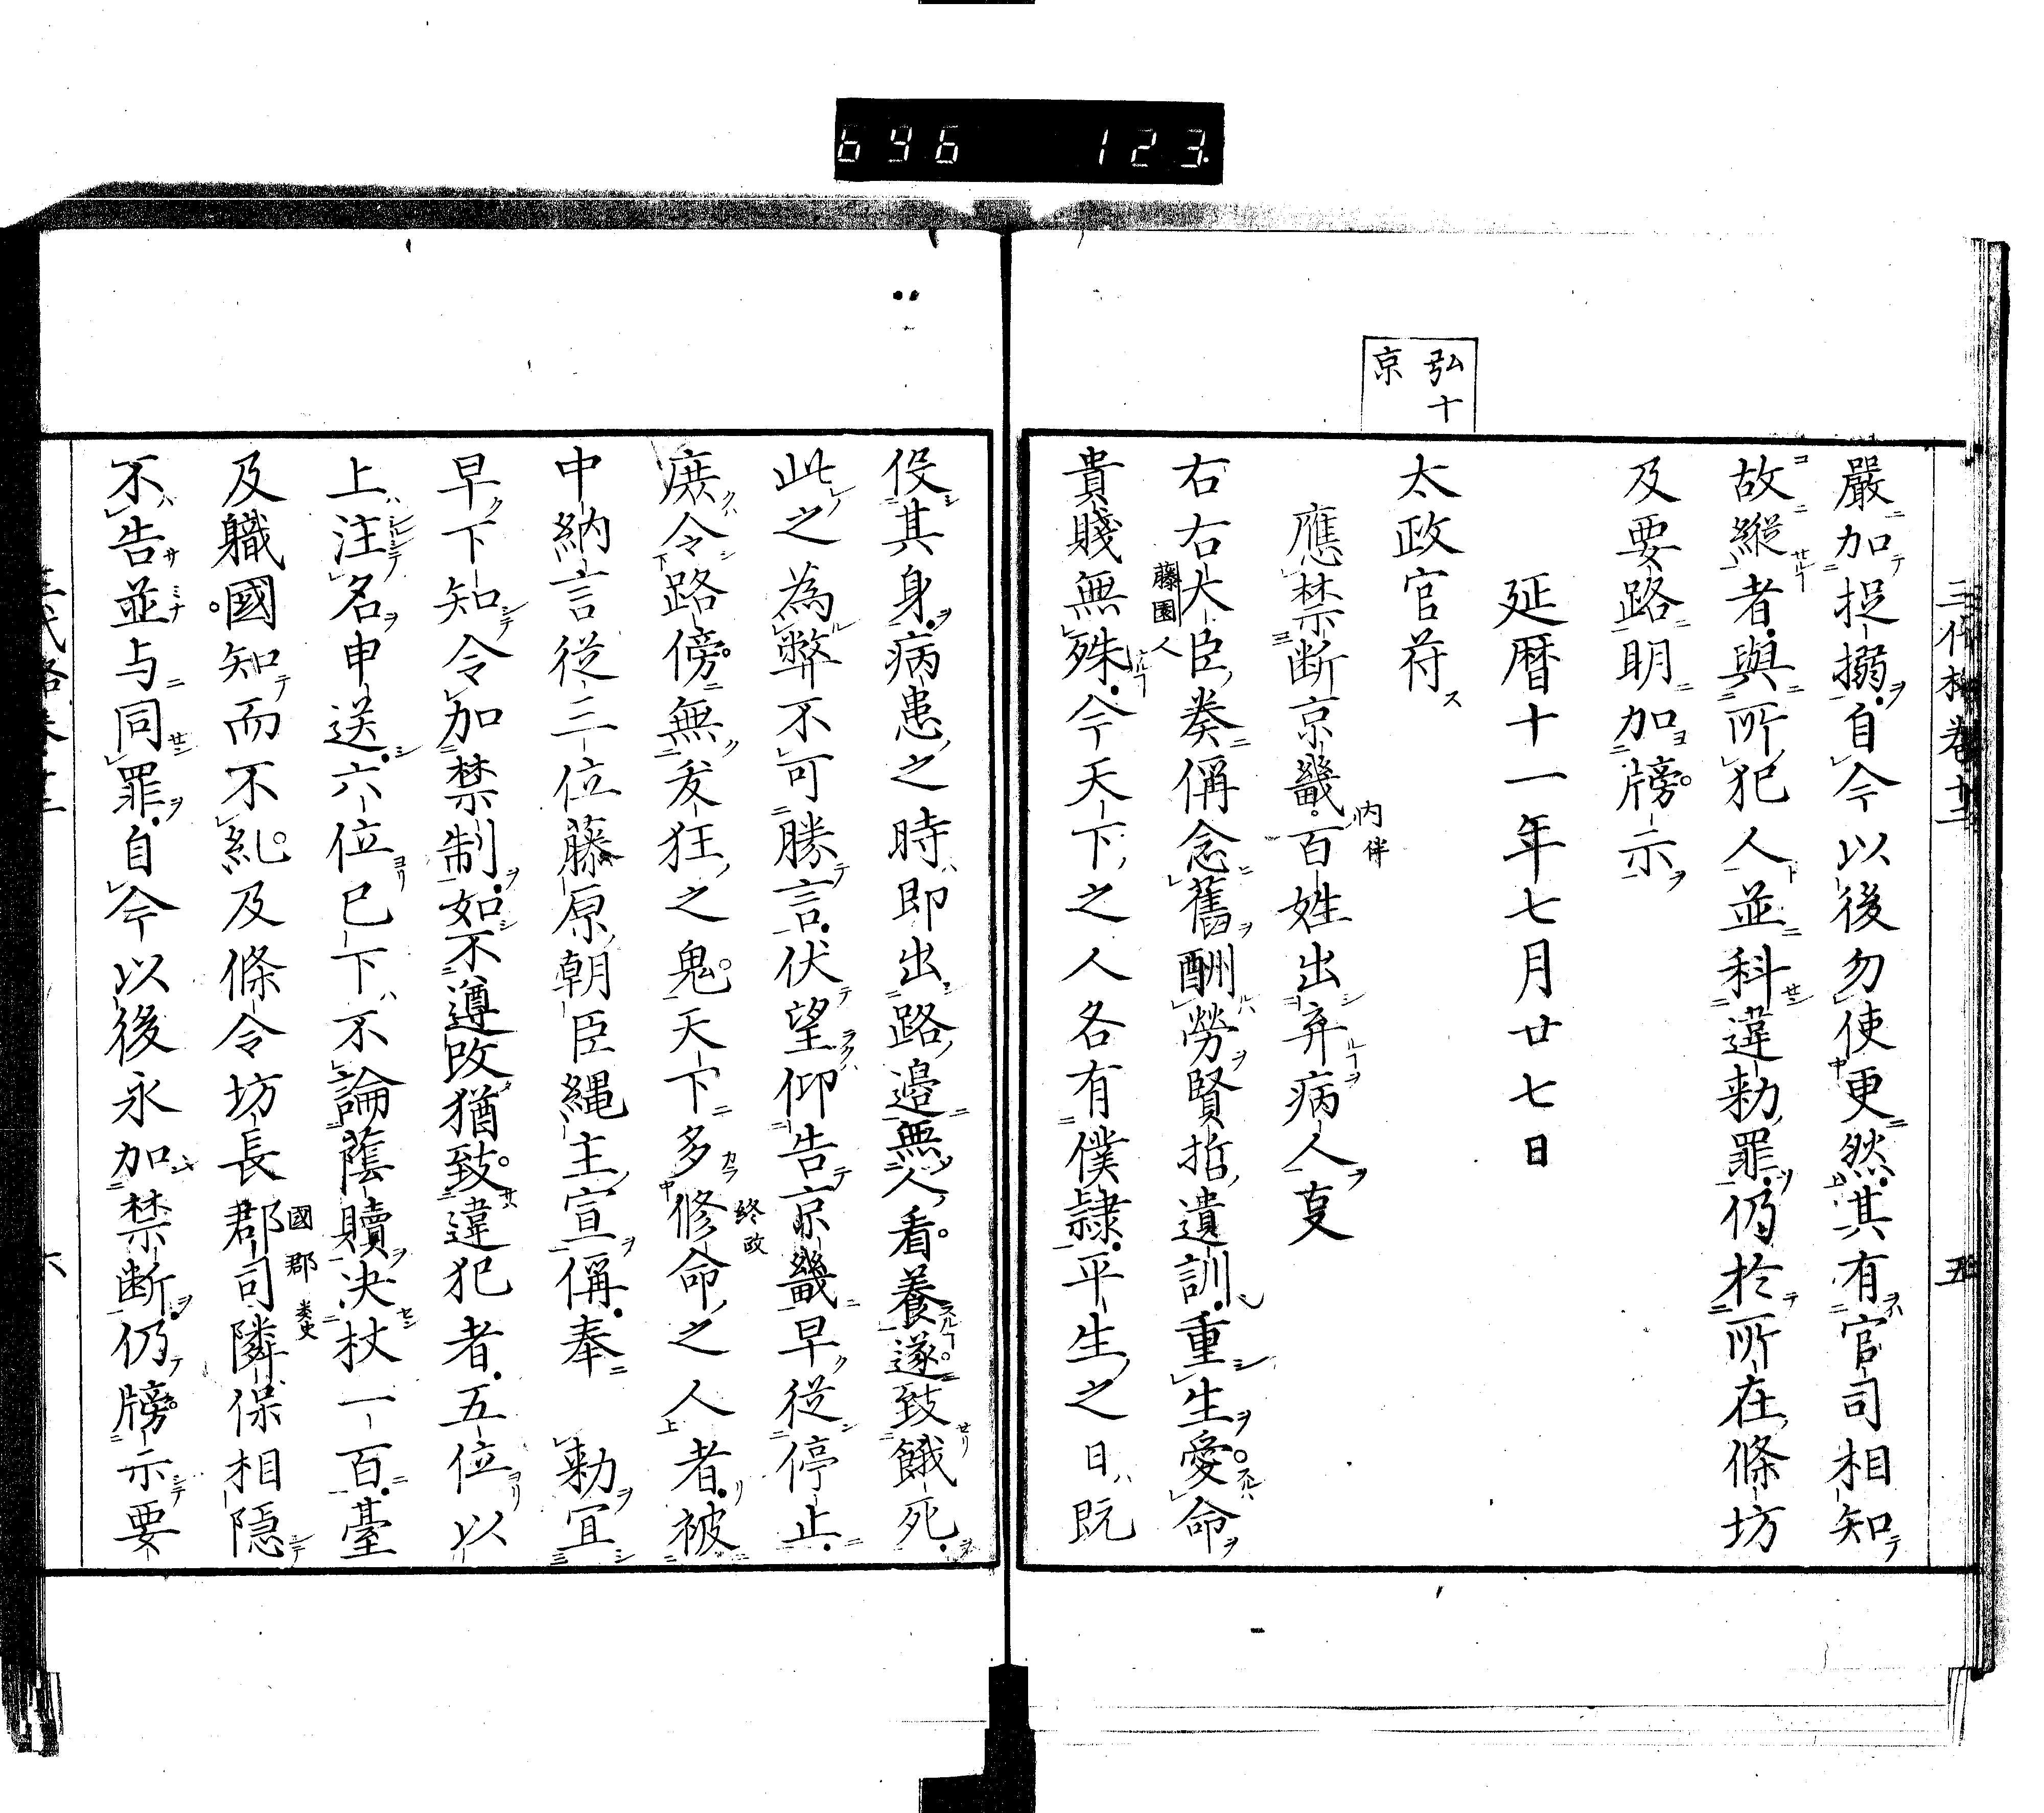 696 123
三代格卷十二 五
嚴加捉搦自今以後勿使更然其有官司相知
故縱者與所犯人並科違勅罪仍於所在條坊
及要路明加牓示
延曆十一年七月廿七日
弘十
京
太政官符
應禁断京畿百姓出弃病人事
内伴
右右大臣奏偁念舊酬勞賢哲遺訓重生愛命
藤園人
貴賤無殊今天下之人各有僕隷平生之日既
役其身病患之時即出路邊無人看養遂致餓死
此之為弊不可勝言伏望仰告京畿早從停止
庶令路傍無犮狂之鬼天下多修命之人者被
終政
中納言從三位藤原朝臣縄主宣偁奉 勅宜
早下知令加禁制如不遵改猶致違犯者五位以
上注名申送六位已下不論蔭贖决杖一百臺
及職國知而不糺及條令坊長郡司隣保相隠
國郡 类史
不告並与同罪自今以後永加禁断仍牓示要
六